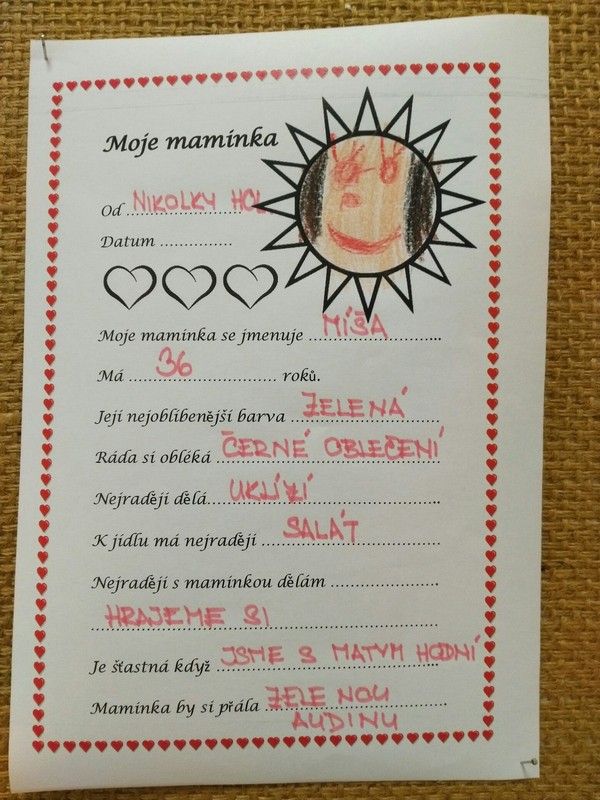 Moje maminka
Od NIKOLKY HOL
Datum
Moje maminka se jmenuje MÍŠA
Má 36 roků.
Její nejoblíbenější barva ZELENÁ
Ráda si obléká ČERNÉ OBLEČENÍ
Nejraději dělá UKLÍZÍ
K jídlu má nejraději SALÁT
Nejraději s maminkou dělám
HRAJEME SI
Je šťastná když JSME S MATYM HODNÍ
Maminka by si přála ZELENOU
AUDINU